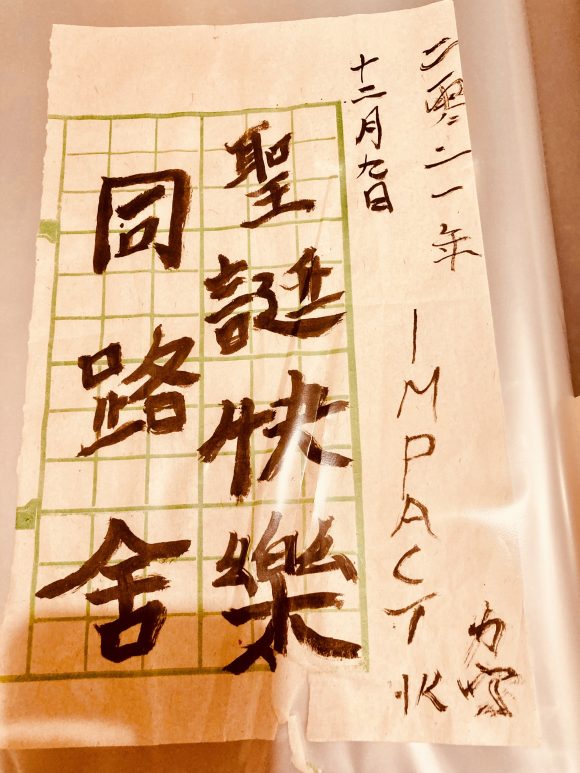 二零二一年
十二月九日
IMPACT HK
聖誕快樂
同路舍